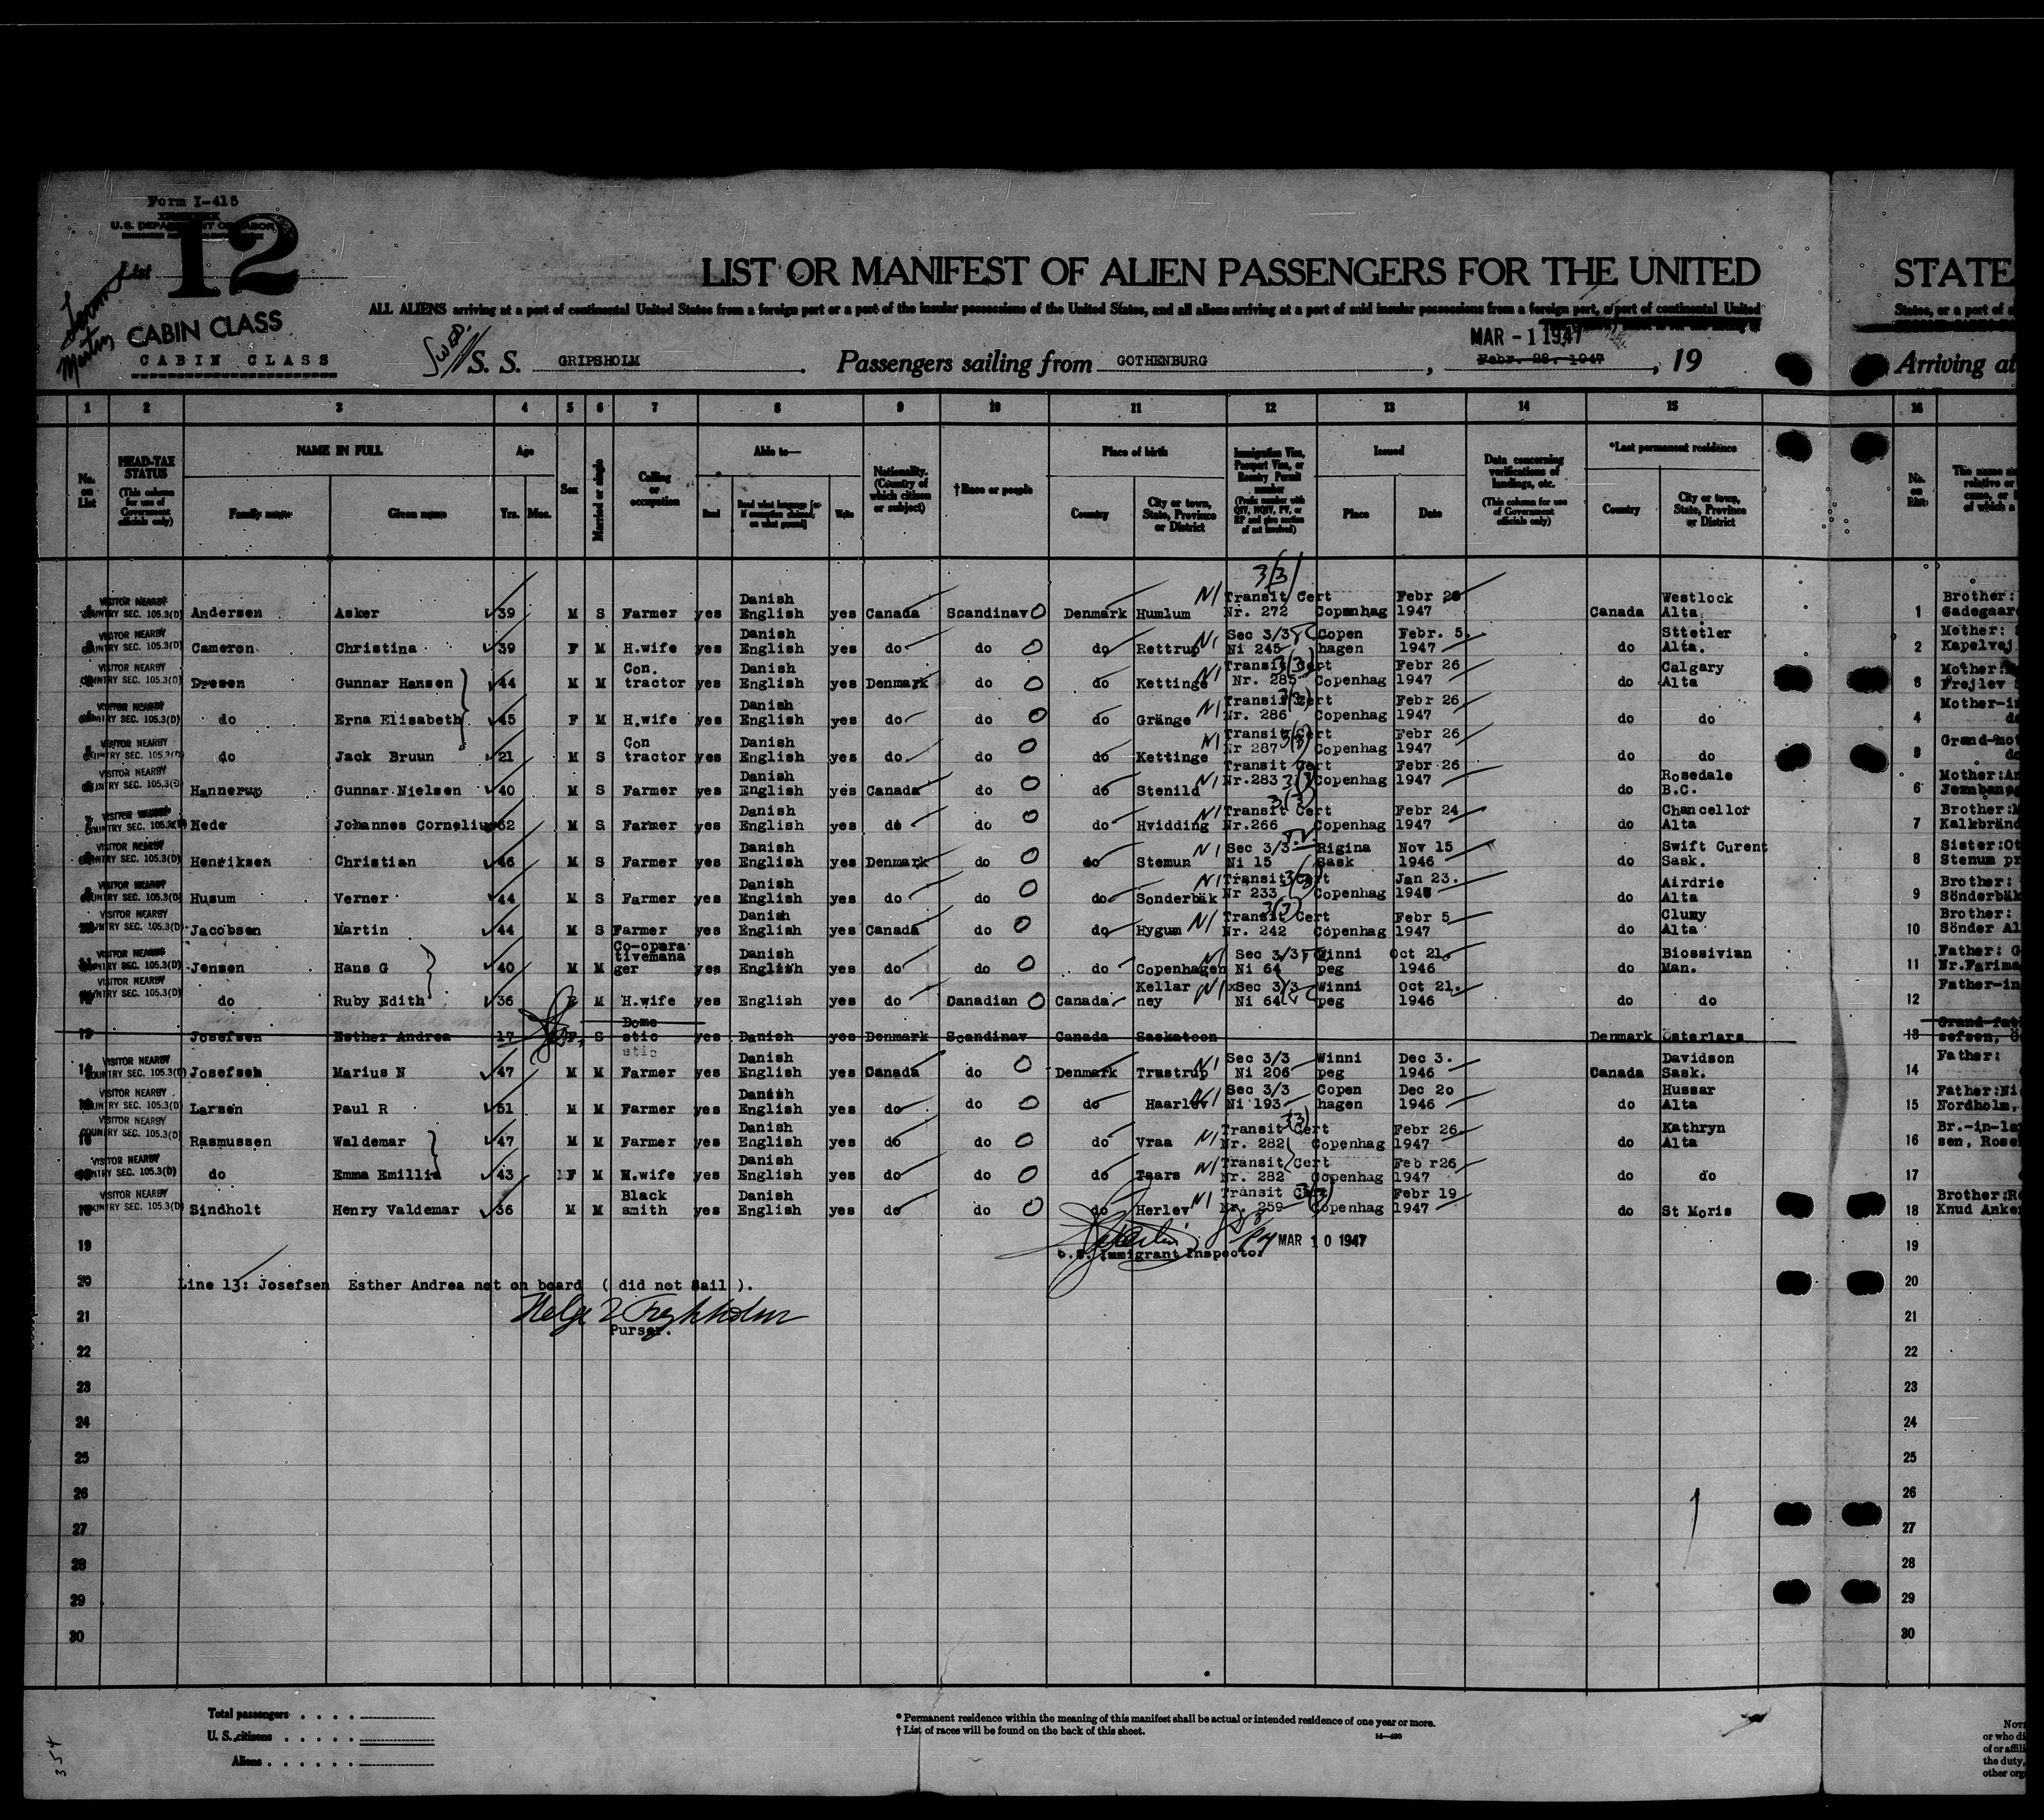 Form I-415
U.S. DEPARTMENT OF LABOR
List 12
CABIN CLASS
CABIN CLASS
LIST OR MANIFEST OF ALIEN PASSENGERS FOR THE UNITED
STATE
ALL ALIENS arriving at a port of continental United States from a foreign port or a port of the insular possessions of the United States, and all aliens arriving at a port of said insular possessions from a foreign port, a port of continental United
States, or a port of a
MAR - 1 1947
S. S. GRIPSHOLM. Passengers sailing from GOTHENBURG, Febr. 28. 1947, 19
Arriving at
1 2 3 4 5 6 7 8 9 10 11 12 13 14 15 16
No. on List
HEAD-TAX STATUS (This column for use of Government officials only)
NAME IN FULL Family name Given name
Age Yrs. Mos.
Sex
Married or single
Calling or occupation
Able to— Read Read what language [or if exemption claimed, on what ground] Write
Nationality. (Country of which citizen or subject)
†Race or people
Place of birth Country City or town, State, Province or District
Immigration Visa, Passport Visa, or Reentry Permit number (Prefix number with QIV, NQIV, PV, or RP and give section of act involved)
Issued Place Date
Data concerning verifications of landings, etc. (This column for use of Government officials only)
*Last permanent residence Country City or town, State, Province or District
No. on List
VISITOR NEARBY COUNTRY SEC. 105.3(D) Andersen Asker 39 M S Farmer yes Danish English yes Canada Scandinav Denmark Humlum N1 Transit Cert Nr. 272 3(3) Copenhag Febr 26 1947 Canada Westlock Alta 1 Brother: Gadegaar
VISITOR NEARBY COUNTRY SEC. 105.3(D) Cameron Christina 39 F M H.wife yes Danish English yes do do do Rettrup N1 Sec 3/3 Ni 245 Copen hagen Febr. 5. 1947 do Sttetler Alta. 2 Mother: Kapelvej
VISITOR NEARBY COUNTRY SEC. 105.3(D) Dresen Gunnar Hansen 44 M M Con. tractor yes Danish English yes Denmark do do Kettinge N1 Transit Cert Nr. 285 3(3) Copenhag Febr 26 1947 do Calgary Alta Mother: Frejlev
VISITOR NEARBY COUNTRY SEC. 105.3(D) do Erna Elisabeth 45 F M H.wife yes Danish English yes do do do Gränge N1 Transit Cert Nr. 286 3(3) Copenhag Febr 26 1947 do do 4 Mother-in
VISITOR NEARBY COUNTRY SEC. 105.3(D) do Jack Bruun 21 M S Con tractor yes Danish English yes do do do Kettinge N1 Transit Cert Nr 287 3(3) Copenhag Febr 26 1947 do do Grand-mot
VISITOR NEARBY COUNTRY SEC. 105.3(D) Hannerup Gunnar Nielsen 40 M S Farmer yes Danish English yes Canada do do Stenild N1 Transit Cert Nr.283 3(3) Copenhag Febr 26 1947 do Rosedale B.C. 6 Mother:An
VISITOR NEARBY COUNTRY SEC. 105.3(D) Hede Johannes Cornelius 62 M S Farmer yes Danish English yes do do do Hvidding N1 Transit Cert Nr.266 3(3) Copenhag Febr 24 1947 do Chancellor Alta 7 Brother: Kalkbränd
VISITOR NEARBY COUNTRY SEC. 105.3(D) Henriksen Christian 46 M S Farmer yes Danish English yes Denmark do do Stemun N1 Sec 3/3 Ni 15 Rigina Sask Nov 15 1946 do Swift Curent Sask. 8 Sister:Ot Stenum pr
VISITOR NEARBY COUNTRY SEC. 105.3(D) Husum Verner 44 M S Farmer yes Danish English yes do do do Sonderbäk N1 Transit Cert Nr 233 3(3) Copenhag Jan 23. 194 do Airdrie Alta 9 Brother: Sönderbäk
VISITOR NEARBY COUNTRY SEC. 105.3(D) Jacobsen Martin 44 M S Farmer yes Danish English yes Canada do do Hygum N1 Transit Cert Nr. 242 3(3) Copenhag Febr 5 1947 do Cluny Alta 10 Brother: Sönder Al
VISITOR NEARBY COUNTRY SEC. 105.3(D) Jensen Hans G 40 M M Co-opera tivemana ger yes Danish English yes do do do Copenhagen N1 Sec 3/3 Ni 64 Winni peg Oct 21. 1946 do Biossivian Man. 11 Father: G Nr.Farima
VISITOR NEARBY COUNTRY SEC. 105.3(D) do Ruby Edith 36 F M H.wife yes English yes do Canadian Canada Kellar ney N1 xSec 3/3 Ni 64 Winni peg Oct 21. 1946 do do 12 Father-in
13 Josefsen Esther Andrea 17 F S Dome stic yes Danish yes Denmark Scandinav Canada Saskatoon Denmark Österlars 13 Grand-fat sefsen,
VISITOR NEARBY COUNTRY SEC. 105.3(D) Josefsen Marius N 47 M M Farmer yes Danish English yes Canada do Denmark Trustrup N1 Sec 3/3 Ni 206 Winni peg Dec 3. 1946 Canada Davidson Sask. 14 Father:
VISITOR NEARBY COUNTRY SEC. 105.3(D) Larsen Paul R 51 M M Farmer yes Danish English yes do do do Haarlev N1 Sec 3/3 Ni 193 Copen hagen Dec 20 1946 do Hussar Alta 15 Father:Ni Nordholm,
VISITOR NEARBY COUNTRY SEC. 105.3(D) Rasmussen Waldemar 47 M M Farmer yes Danish English yes do do do Vraa N1 Transit Cert Nr. 282 3(3) Copenhag Febr 26 1947 do Kathryn Alta 16 Br.-in-la sen, Rose
VISITOR NEARBY COUNTRY SEC. 105.3(D) do Emma Emillie 43 F M H.wife yes Danish English yes do do do Taars N1 Transit Cert Nr. 282 Copenhag Feb r26 1947 do do 17
VISITOR NEARBY COUNTRY SEC. 105.3(D) Sindholt Henry Valdemar 36 M M Black smith yes Danish English yes do do do Herlev N1 Transit Cert Nr. 259 3(3) Copenhag Febr 19 1947 do St Moris 18 Brother:Re Knud Anke
19 MAR 10 1947 19
U.S. Immigrant Inspector
20 Line 13: Josefsen Esther Andrea not on board ( did not Sail ). 20
21 21
Purser.
22 22
23 23
24 24
25 25
26 26
27 27
28 28
29 29
30 30
Total passengers
U. S. citizens
Aliens
* Permanent residence within the meaning of this manifest shall be actual or intended residence of one year or more.
† List of races will be found on the back of this sheet.
354
or who di
of or affili
the duty,
other org